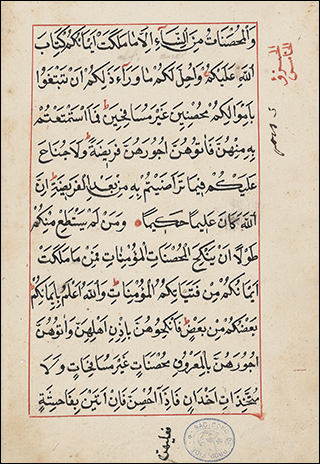 وَالْمُحْصَنَاتُ مِنَ النِّسَاءِ اِلَّا مَا مَلَكَتْ اَيْمَانُكُمْ كِتَابَ
اللّٰهِ عَلَيْكُمْ وَاُحِلَّ لَكُمْ مَا وَرَاءَ ذٰلِكُمْ اَنْ تَبْتَغُوا
بِاَمْوَالِكُمْ مُحْصِنِينَ غَيْرَ مُسَافِحِينَ فَمَا اسْتَمْتَعْتُمْ
بِهِ مِنْهُنَّ فَاٰتُوهُنَّ اُجُورَهُنَّ فَرِيضَةً وَلَا جُنَاحَ
عَلَيْكُمْ فِيمَا تَرَاضَيْتُمْ بِهِ مِنْ بَعْدِ الْفَرِيضَةِ اِنَّ
اللّٰهَ كَانَ عَلِيمًا حَكِيمًا وَمَنْ لَمْ يَسْتَطِعْ مِنْكُمْ
طَوْلًا اَنْ يَنْكِحَ الْمُحْصَنَاتِ الْمُؤْمِنَاتِ فَمِنْ مَا مَلَكَتْ
اَيْمَانُكُمْ مِنْ فَتَيَاتِكُمُ الْمُؤْمِنَاتِ وَاللّٰهُ اَعْلَمُ بِاِيمَانِكُمْ
بَعْضُكُمْ مِنْ بَعْضٍ فَانْكِحُوهُنَّ بِاِذْنِ اَهْلِهِنَّ وَاٰتُوهُنَّ
اُجُورَهُنَّ بِالْمَعْرُوفِ مُحْصَنَاتٍ غَيْرَ مُسَافِحَاتٍ وَلَا
مُتَّخِذَاتِ اَخْدَانٍ فَاِذَا اُحْصِنَّ فَاِنْ اَتَيْنَ بِفَاحِشَةٍ
فعليهن
الجزؤ
الخامس